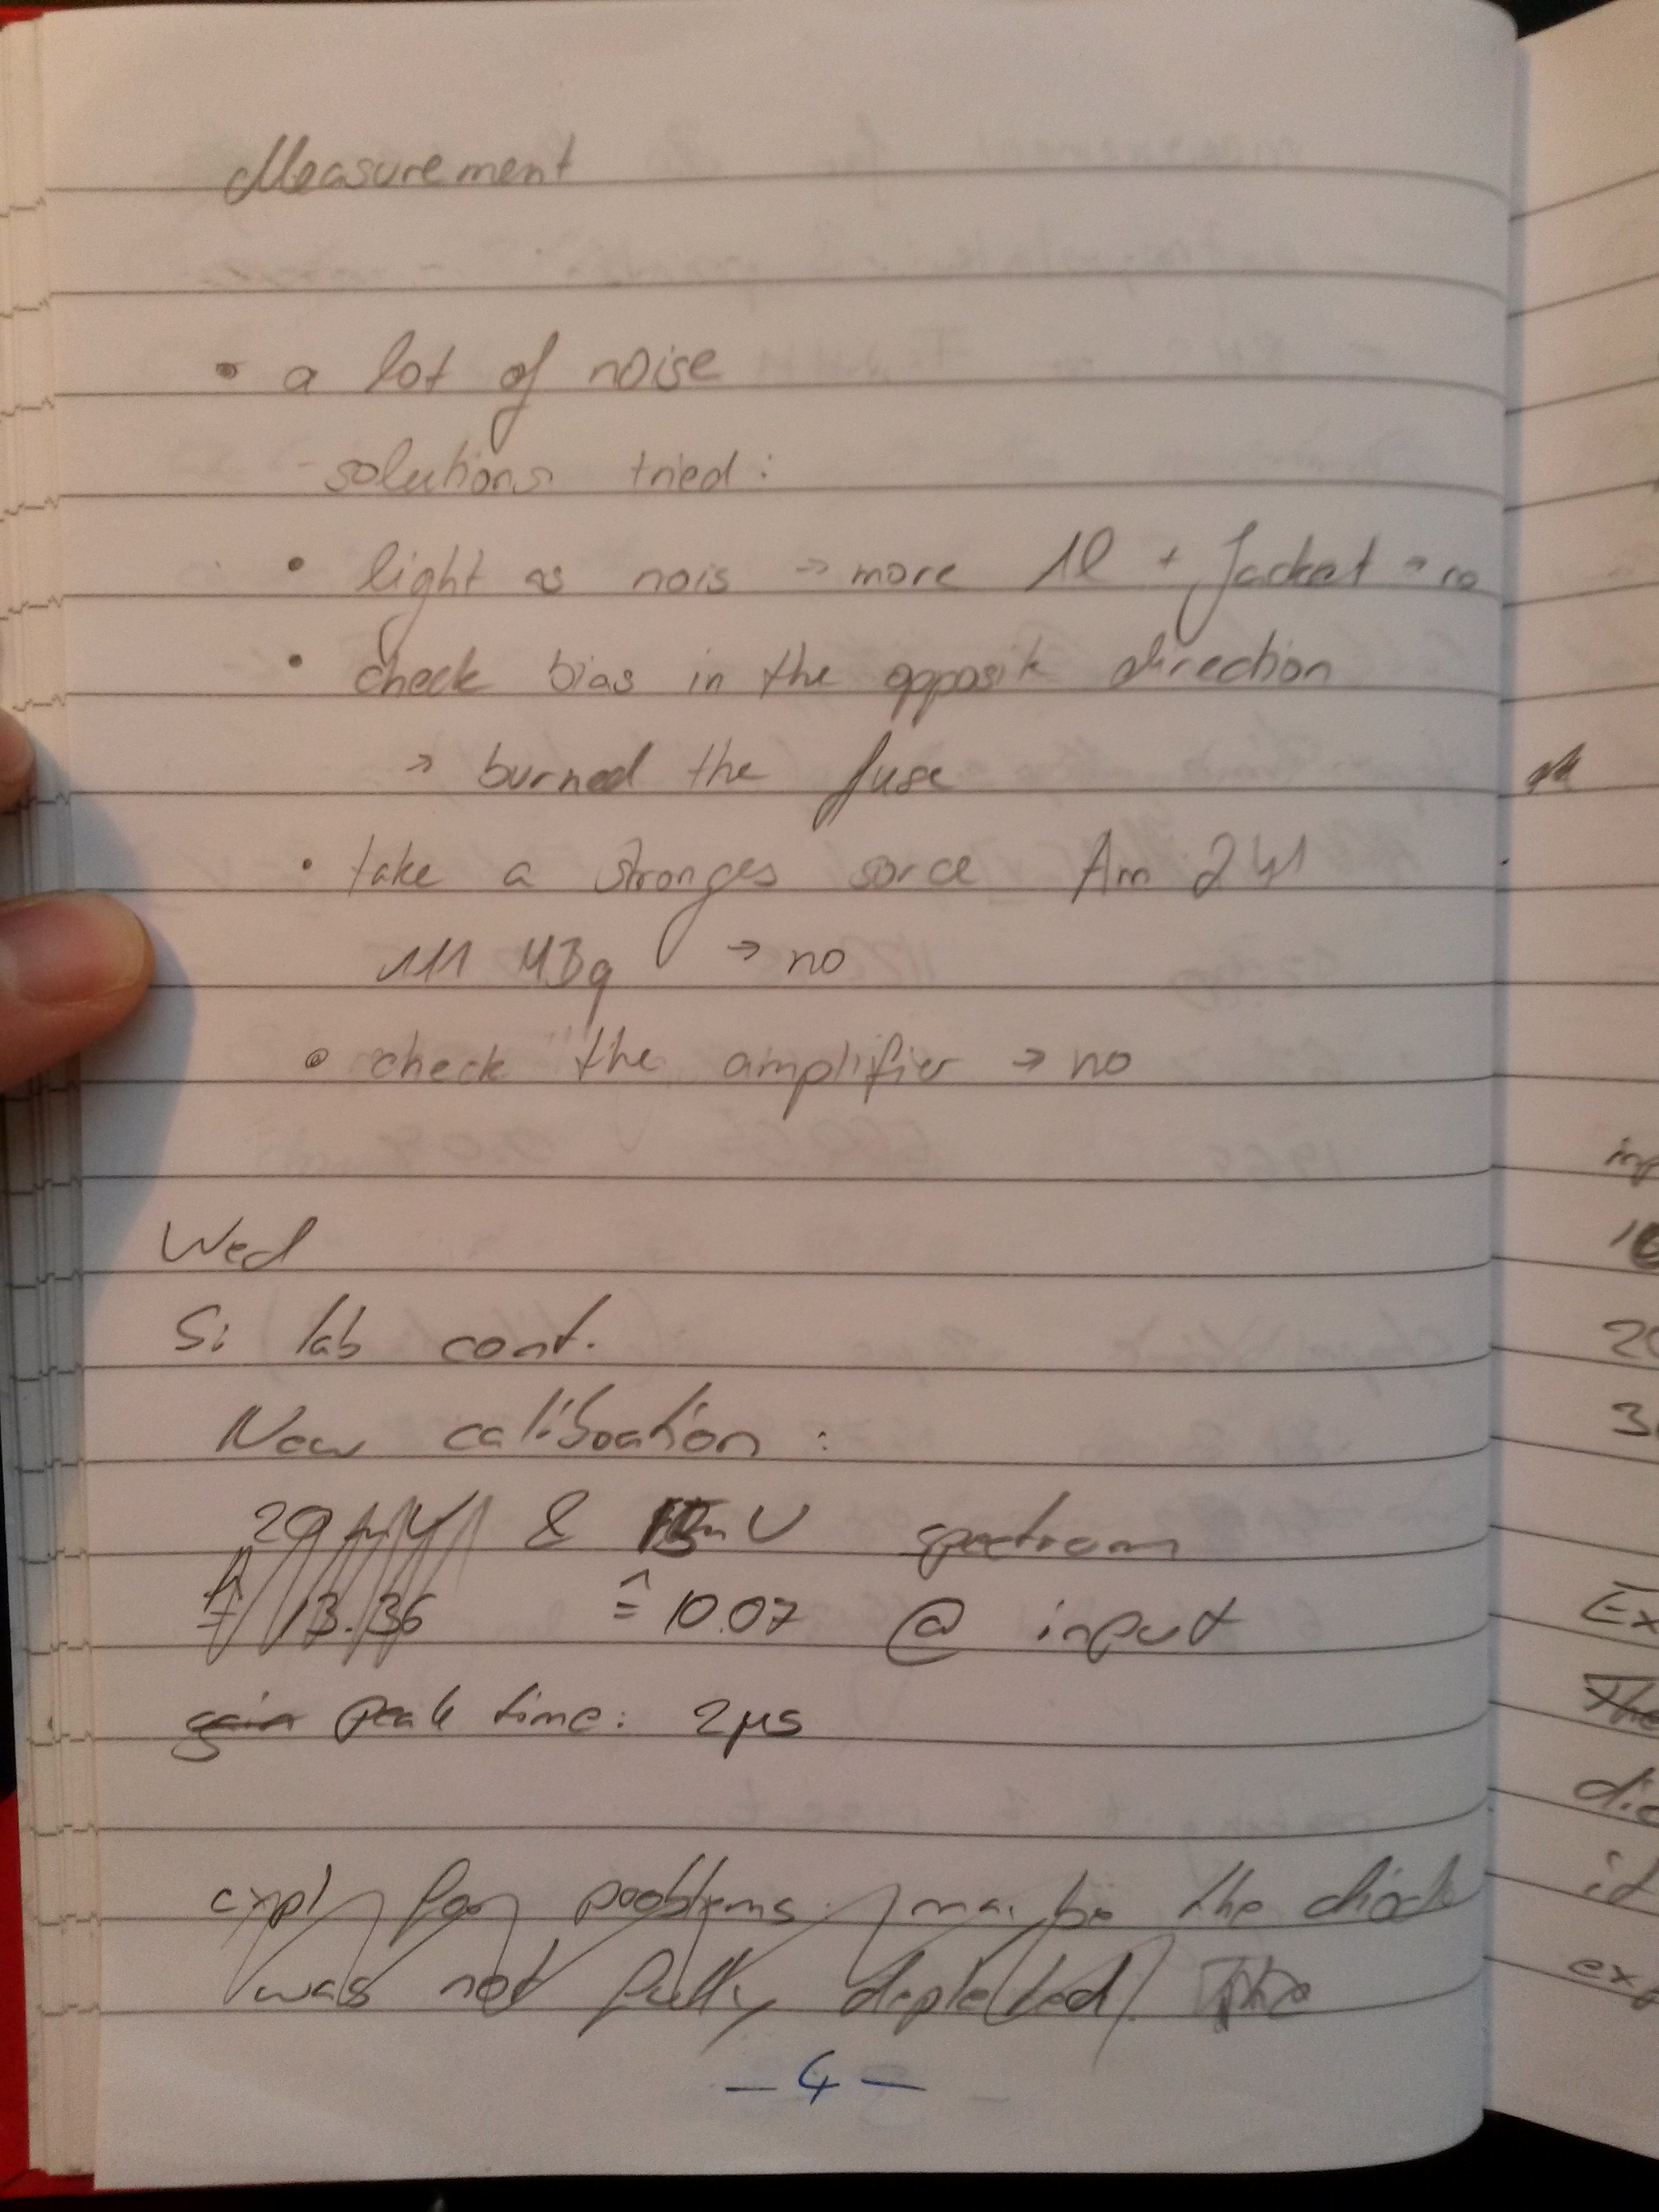 Measurement
• a lot of noise
- solutions tried:
• light as nois → more Al + Jacket → no
• check bias in the opposite direction
→ burned the fuse
• take a stronges sorce Am 241
111 MBq → no
• check the amplifier → no
Wed
Si lab cont.
New calibration:
20 mV & mV spectrum
≙ 13.36 ≙ 10.07 @ input
gain peak time: 2μs
expl for problems: may be the diode
was not fully depleted. The
- 4 -
inp
20
3
Ex
The
dio
it
exp